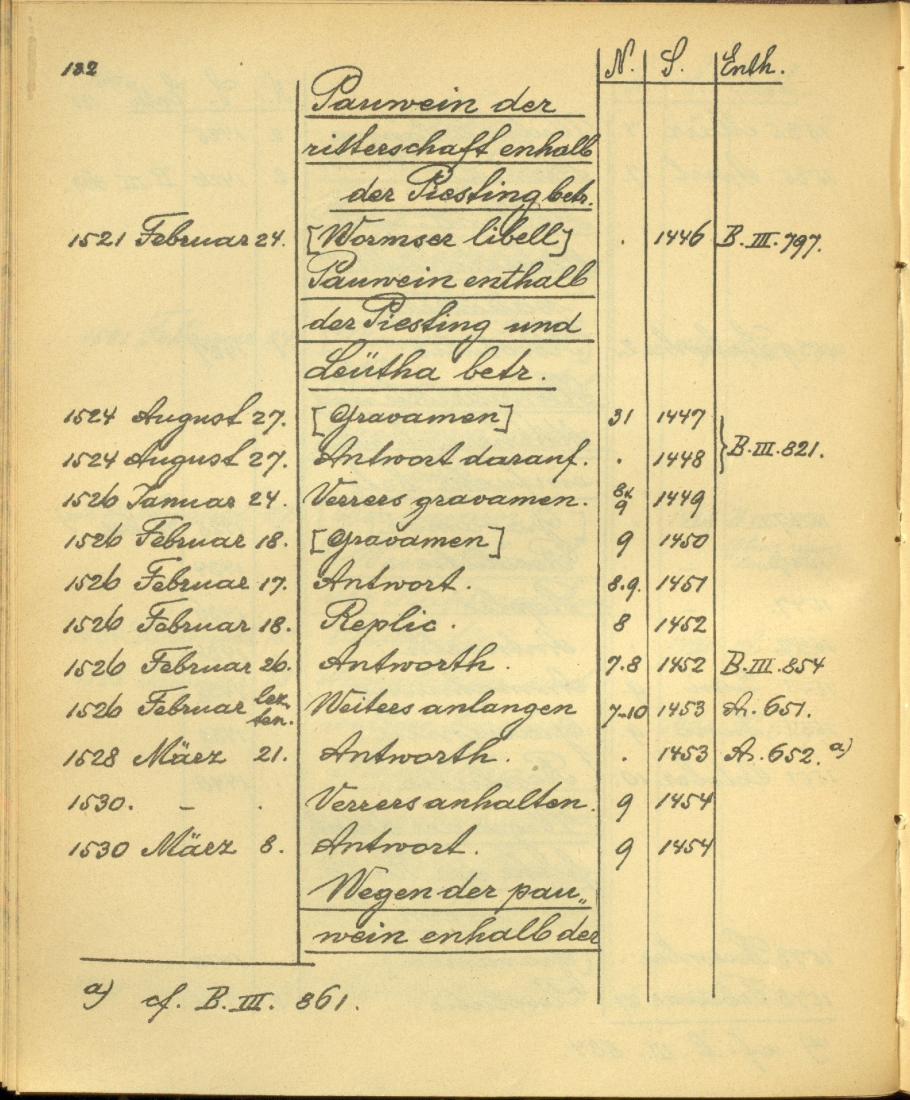 132
N. S. Enth.
Pauwein der
ritterschaft enhalb
der Piesting betr.
1521 Februar 24. [Wormser libell] . 1446 B. III. 797.
Pauwein enthalb
der Piesting und
Leütha betr.
1524 August 27. [Gravamen] 31 1447
1524 August 27. Antwort darauf. . 1448 } B. III. 821.
1526 Januar 24. Verrers gravamen. 8. 9 1449
1526 Februar 18. [Gravamen] 9 1450
1526 Februar 17. Antwort. 8.9. 1451
1526 Februar 18. Replic. 8 1452
1526 Februar 26. Antworth. 7.8 1452 B. III. 854
1526 Februar lez-
ten. Weiters anlangen 7-10 1453 A. 651.
1528 März 21. Antworth. . 1453 A. 652. a)
1530. – . Verrers anhalten. 9 1454
1530 März 8. Antwort. 9 1454
Wegen der pau„
wein enhalb der
a) cf. B. III. 861.